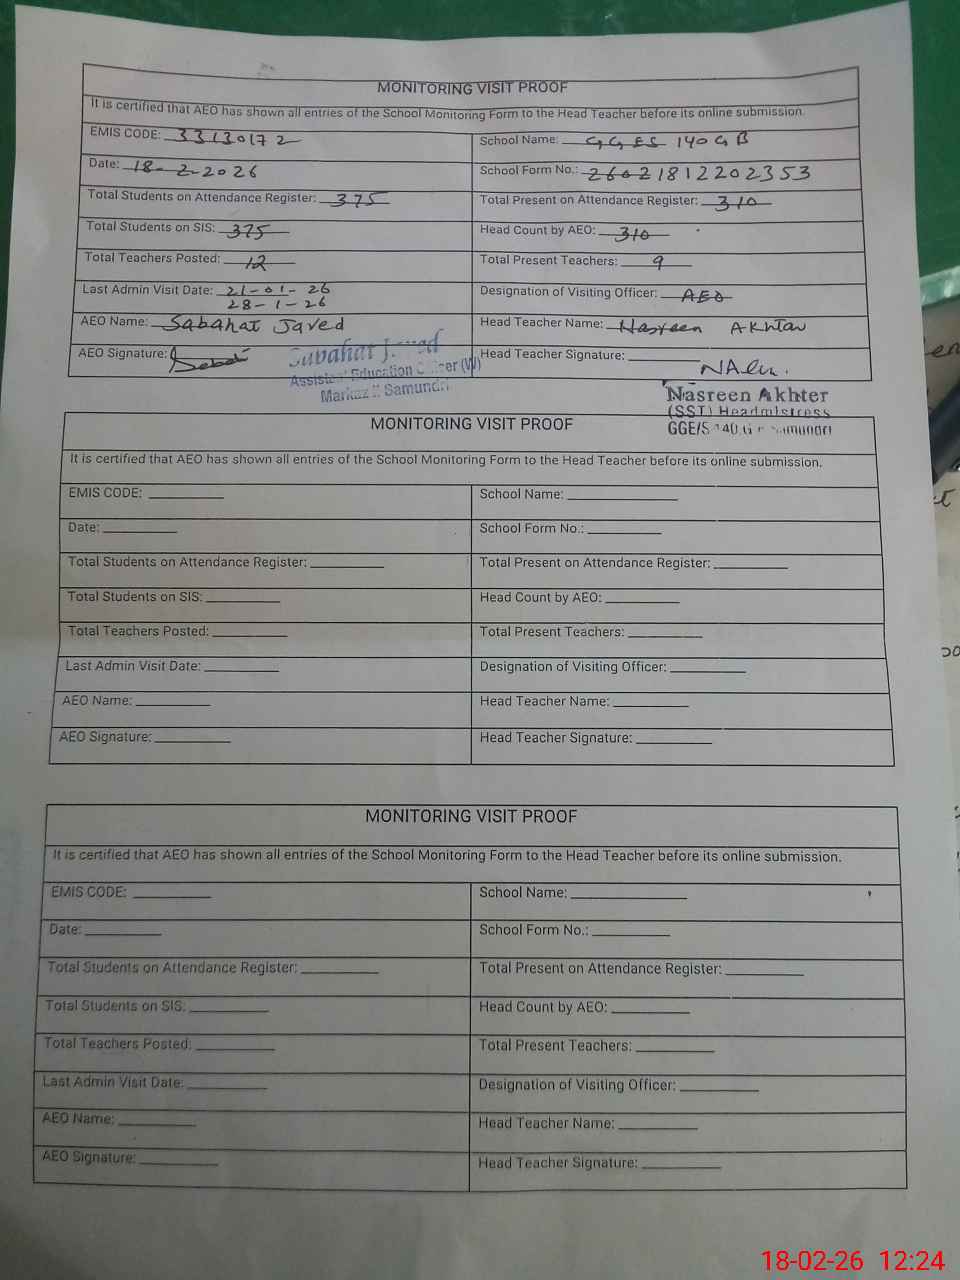 MONITORING VISIT PROOF
It is certified that AEO has shown all entries of the School Monitoring Form to the Head Teacher before its online submission.
EMIS CODE: 33130172 School Name: GGES 140 GB
Date: 18-2-2026 School Form No.: 26021812202353
Total Students on Attendance Register: 375 Total Present on Attendance Register: 310
Total Students on SIS: 375 Head Count by AEO: 310
Total Teachers Posted: 12 Total Present Teachers: 9
Last Admin Visit Date: 21-01-26 Designation of Visiting Officer: AEO
28-1-26
AEO Name: Sabahat Javed Head Teacher Name: Nasreen Akhtar
AEO Signature: Head Teacher Signature:
Sabahat
Assistant Education Officer (W)
Markaz Samundri
Nasreen Akhter
(SST) Headmistress
GGE/S 140 Samundri
MONITORING VISIT PROOF
It is certified that AEO has shown all entries of the School Monitoring Form to the Head Teacher before its online submission.
EMIS CODE: School Name:
Date: School Form No.:
Total Students on Attendance Register: Total Present on Attendance Register:
Total Students on SIS: Head Count by AEO:
Total Teachers Posted: Total Present Teachers:
Last Admin Visit Date: Designation of Visiting Officer:
AEO Name: Head Teacher Name:
AEO Signature: Head Teacher Signature:
MONITORING VISIT PROOF
It is certified that AEO has shown all entries of the School Monitoring Form to the Head Teacher before its online submission.
EMIS CODE: School Name:
Date: School Form No.:
Total Students on Attendance Register: Total Present on Attendance Register:
Total Students on SIS: Head Count by AEO:
Total Teachers Posted: Total Present Teachers:
Last Admin Visit Date: Designation of Visiting Officer:
AEO Name: Head Teacher Name:
AEO Signature: Head Teacher Signature:
18-02-26 12:24